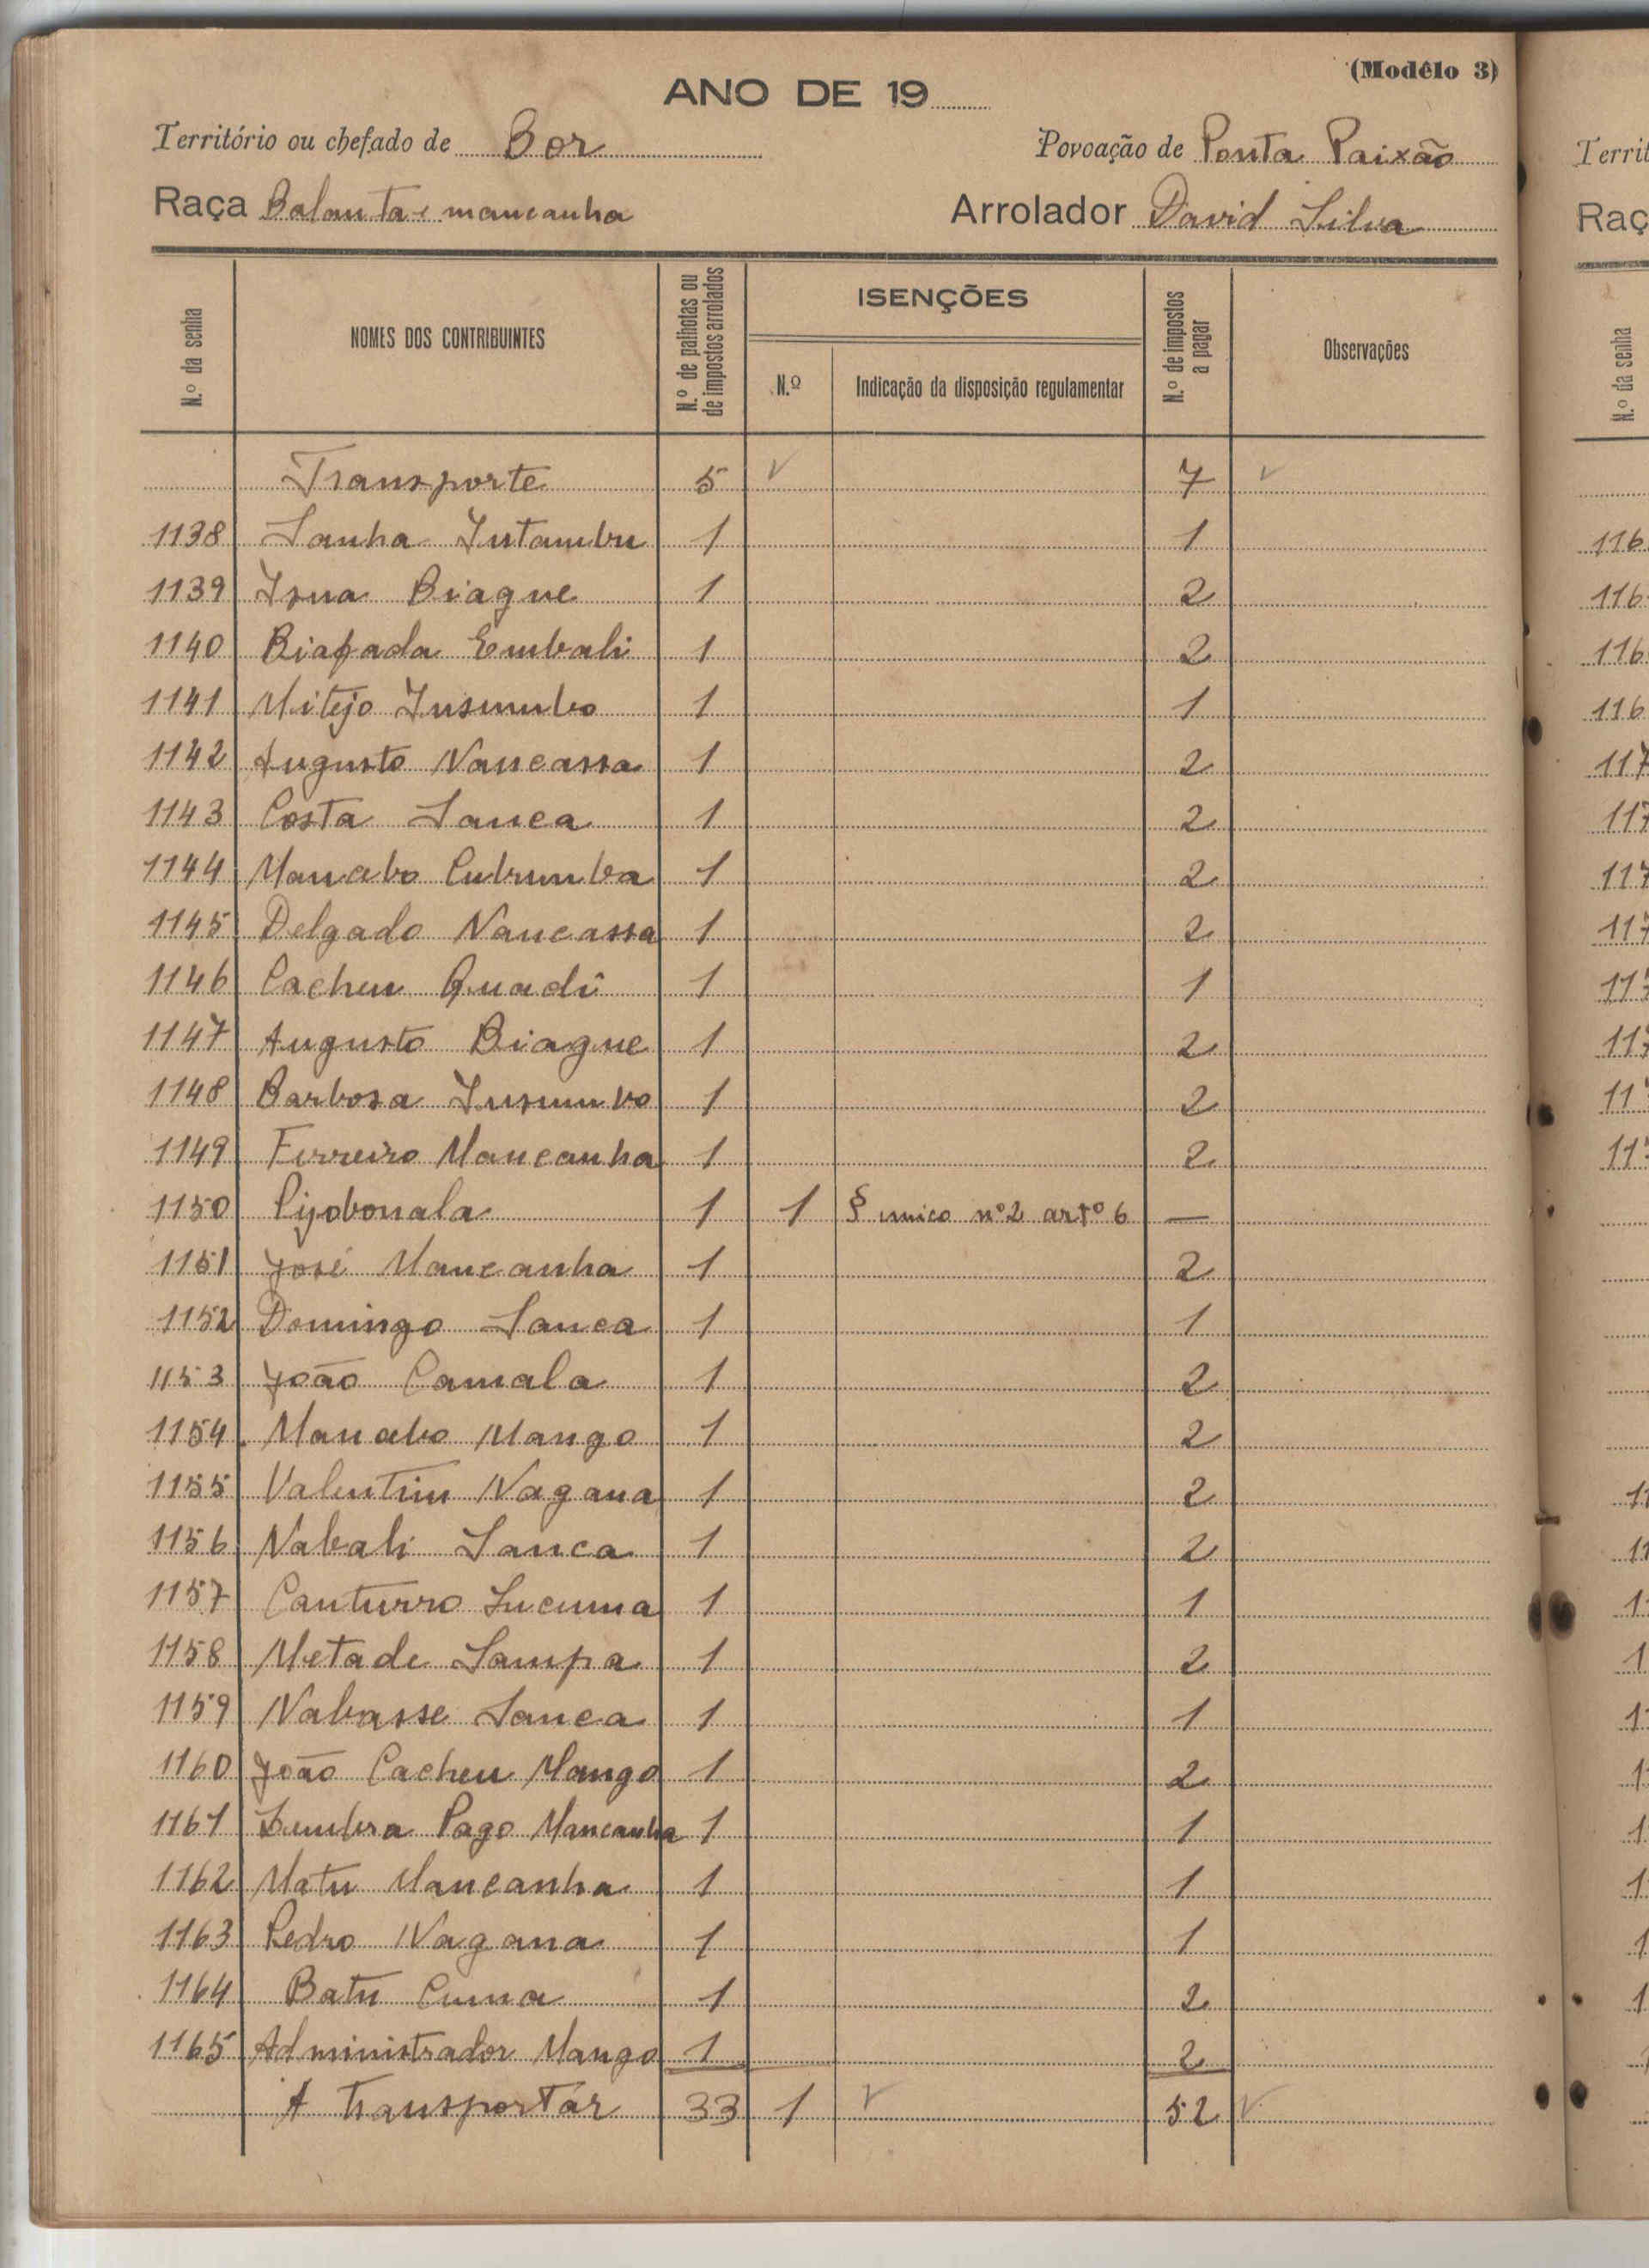 (Modêlo 3)
ANO DE 19
Território ou chefado de Bor Povoação de Ponta Paixão
Raça Balanta e mancanha Arrolador David Silva
N.º da senha NOMES DOS CONTRIBUINTES N.º de palhotas ou de impostos arrolados ISENÇÕES N.º Indicação da disposição regulamentar N.º de impostos a pagar Observações
Transporte 5 7
1138 Sanha Intambu 1 1
1139 Isna Biague 1 2
1140 Biafada Embali 1 2
1141 Mitejo Insumbo 1 1
1142 Augusto Nancassa 1 2
1143 Costa Sanca 1 2
1144 Mancabo Cubumba 1 2
1145 Delgado Nancassa 1 2
1146 Cacheu Quadi 1 1
1147 Augusto Biague 1 2
1148 Barbosa Insumbo 1 2
1149 Ferreiro Mancanha 1 2
1150 Pijobonala 1 1 § unico nº 2 artº 6 —
1151 José Mancanha 1 2
1152 Domingo Sanca 1 1
1153 João Camala 1 2
1154 Mancabo Mango 1 2
1155 Valentim Nagana 1 2
1156 Nabali Sanca 1 2
1157 Canturro Incuma 1 1
1158 Metade Sampa 1 2
1159 Nabasse Sanca 1 1
1160 João Cacheu Mango 1 2
1161 Pago Mancanha 1 1
1162 Matu Mancanha 1 1
1163 Pedro Nagana 1 1
1164 Batu Cuma 1 2
1165 Administrador Mango 1 2
A Transportar 33 1 52
Territ
Raç
N.º da senha